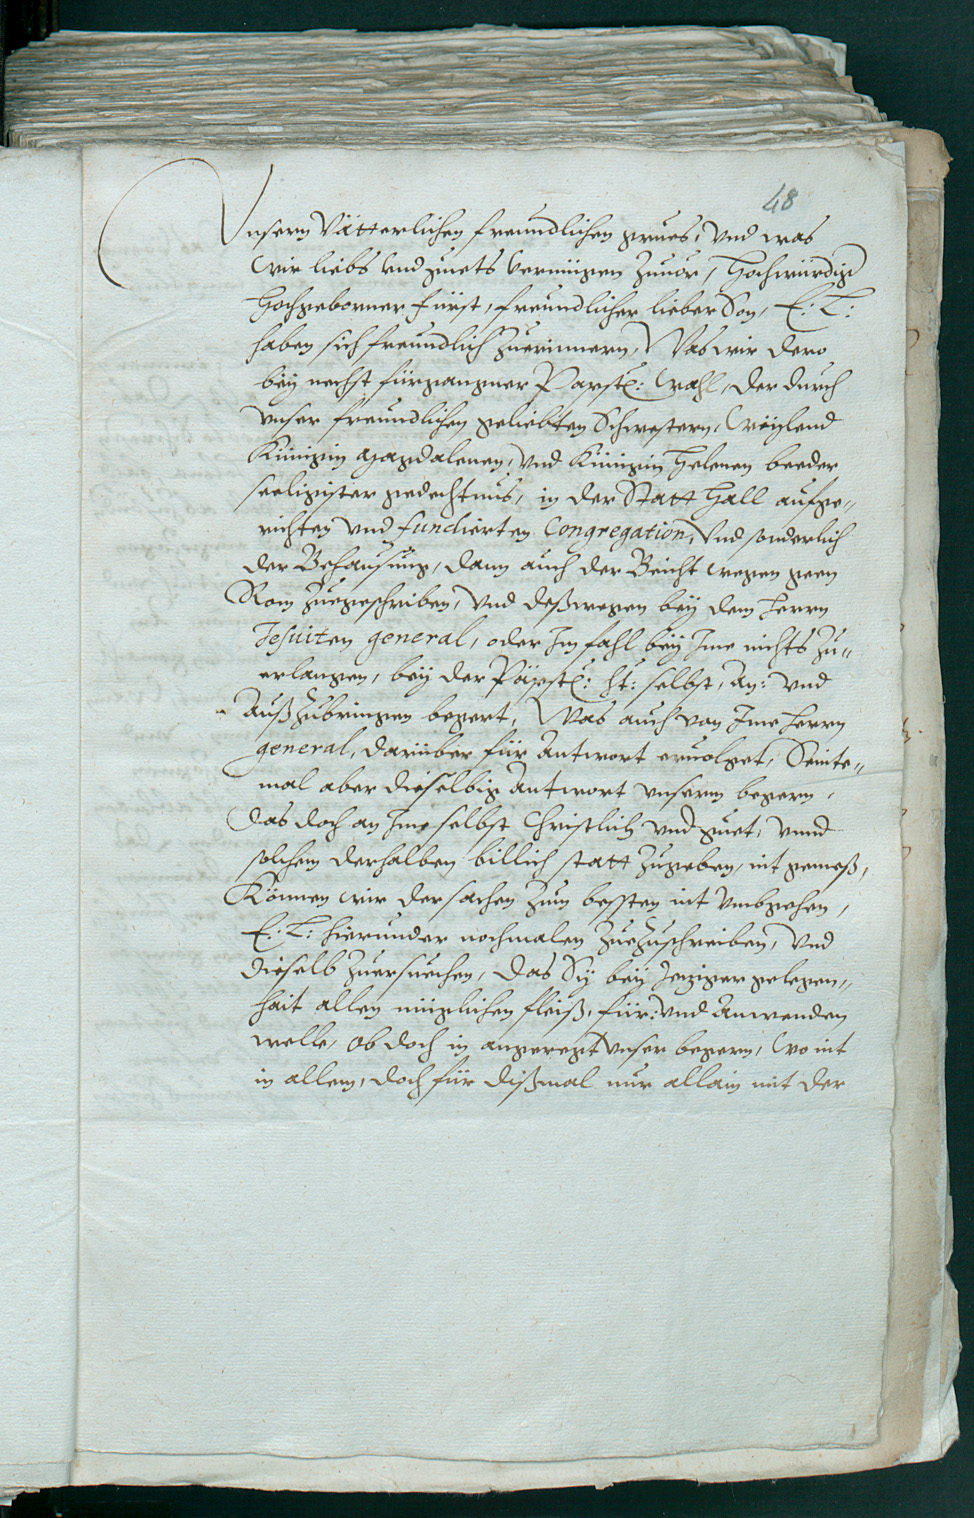 48
Vnsern Vätterlichen freundlichen grues, vnd was
wir liebs vnd guets vermügen zuuor, Hochwürdig
Hochgeborner Fürst, freundlicher lieber Son, E: L:
haben sich freundlich zuerinnern, Was wir dero
bey nechst fürganngner Papstl: Wahl, der durch
vnser freundlichen geliebten Schwestern, Weylend
Künigin Magdalenen, vnd Künigin Helenen beeder
seeligister gedechtnus, in der Statt Hall aufge¬
richten vnd fundierten Congregation, Vnd sonderlich
der Behausung, dann auch der Beicht wegen geen
Rom zuegeschriben, vnd deßwegen bey dem Herrn
Jesuiten general, oder Im fahl bey Ime nichts zu¬
erlangen, bey der Päpstl: Ht: selbst, An: vnd
Außzubringen begert, Was auch von Ime Herrn
general, darüber für Antwort eruolget, Seinte¬
mal aber dieselbig Antwort vnserm begern,
das doch an Ime selbst Christlich vnd guet, vnnd
solchem derhalben billich statt zugeben, nit gemeß,
Können wir der sachen zum bessten nit vmbgehen,
E: L: hierunder nochmalen zuezuschreiben, vnd
dieselb zuersuechen, das Sy bey yetziger gelegen¬
hait allen müglichen fleiß, für: vnd Anwenden
welle, Ob doch in angeregt vnser begern, wo nit
in allem, doch für dißmal nur allain mit der